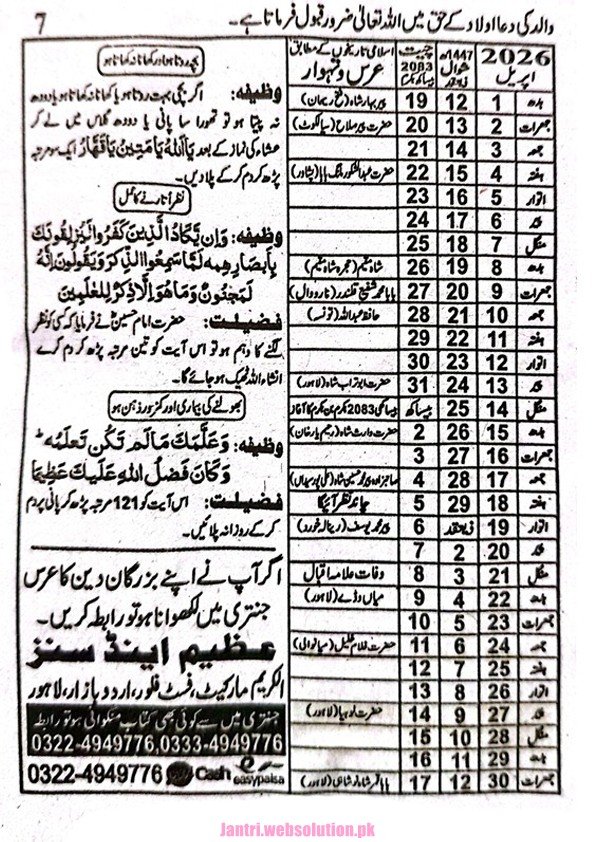 والد کی دعا اولاد کے حق میں اللہ تعالیٰ ضرور قبول فرماتا ہے۔ 7
بچہ روتا ہو اور کھانا نہ کھاتا ہو
وظیفہ: اگر بچی بہت روتا ہو یا کھانا نہ کھاتا ہو یا دودھ
نہ پیتا ہو تو تھورا سا پانی یا دودھ گلاس میں لے کر
عشاء کی نماز کے بعد یا اللہ یا متین یا قھار ایک سو مرتبہ
پڑھ کر دم کر کے پلا دیں۔
نظر اُتارنے کا عمل
وظیفہ: وَاِنْ يَّكَادُ الَّذِيْنَ كَفَرُوْا لَيُزْلِقُوْنَكَ
بِاَبْصَارِهِمْ لَمَّا سَمِعُوا الذِّكْرَ وَيَقُوْلُوْنَ اِنَّهٗ
لَمَجْنُوْنٌ وَمَا هُوَ اِلَّا ذِكْرٌ لِّلْعٰلَمِيْنَ
فضیلت: حضرت امام حسینؓ نے فرمایا کہ کسی کو نظر
لگنے کا وہم ہو تو اس آیت کو تین مرتبہ پڑھ کر دم کرے
انشاء اللہ ٹھیک ہو جائے گا۔
بھولنے کی بیماری اور کمزور ذہن ہو
وظیفہ: وَعَلَّمَكَ مَالَمْ تَكُنْ تَعْلَمُ ؕ
وَكَانَ فَضْلُ اللهِ عَلَيْكَ عَظِيْمًا
فضیلت: اس آیت کو 121 مرتبہ پڑھ کر پانی پر دم
کر کے روزانہ پلائیں۔
اگر آپ نے اپنے بزرگان دین کا عرس
جنتری میں لکھوانا ہو تو رابطہ کریں۔
عظیم اینڈ سنز
الکریم مارکیٹ، فسٹ فلور، اردو بازار، لاہور
جنتری میں سے کوئی بھی کتاب منگوانی ہو تو رابطہ
0322-4949776,0333-4949776
0322-4949776 Cash easypaisa
2026 اپریل 1447ھ شوال ذیقعد اسلامی تاریخوں کے مطابق عرس و تہوار چیت 2083 بیساکھ بکرم
بدھ 1 12 19 پیر بہار شاہ (فتح ریحان)
جمعرات 2 13 20 حضرت پیر صلاح (سیالکوٹ)
جمعہ 3 14 21
ہفتہ 4 15 22 حضرت عبدالشکور ملنگ بابا (پشاور)
اتوار 5 16 23
پیر 6 17 24
منگل 7 18 25
بدھ 8 19 26 شاہ مقیم (حجرہ شاہ مقیم)
جمعرات 9 20 27 بابا محمد شفیع قلندر (نارووال)
جمعہ 10 21 28 حافظ عبداللہ (تونسہ)
ہفتہ 11 22 29
اتوار 12 23 30
پیر 13 24 31 حضرت ابو تراب شاہ (لاہور)
منگل 14 25 بیساکھ بیساکھی 2083 بکرم بن بکرم کا آغاز
بدھ 15 26 2 حضرت وارث شاہ (رحیم یار خان)
جمعرات 16 27 3
جمعہ 17 28 4 صاحبزادہ پیر محمد حسین شاہ
ہفتہ 18 29 5 چاند نظر آئیگا
اتوار 19 ذیقعد 6 پیر محمد یوسف (رینالہ خورد)
پیر 20 2 7
منگل 21 3 8 وفات علامہ اقبال
بدھ 22 4 9 میاں وڈے (لاہور)
جمعرات 23 5 10
جمعہ 24 6 11 حضرت غلام خلیل (میانوالی)
ہفتہ 25 7 12
اتوار 26 8 13
پیر 27 9 14 حضرت لوہیا (لاہور)
منگل 28 10 15
بدھ 29 11 16
جمعرات 30 12 17 بابا قمر شاہ نوشاہی (لاہور)
Jantri.websolution.pk